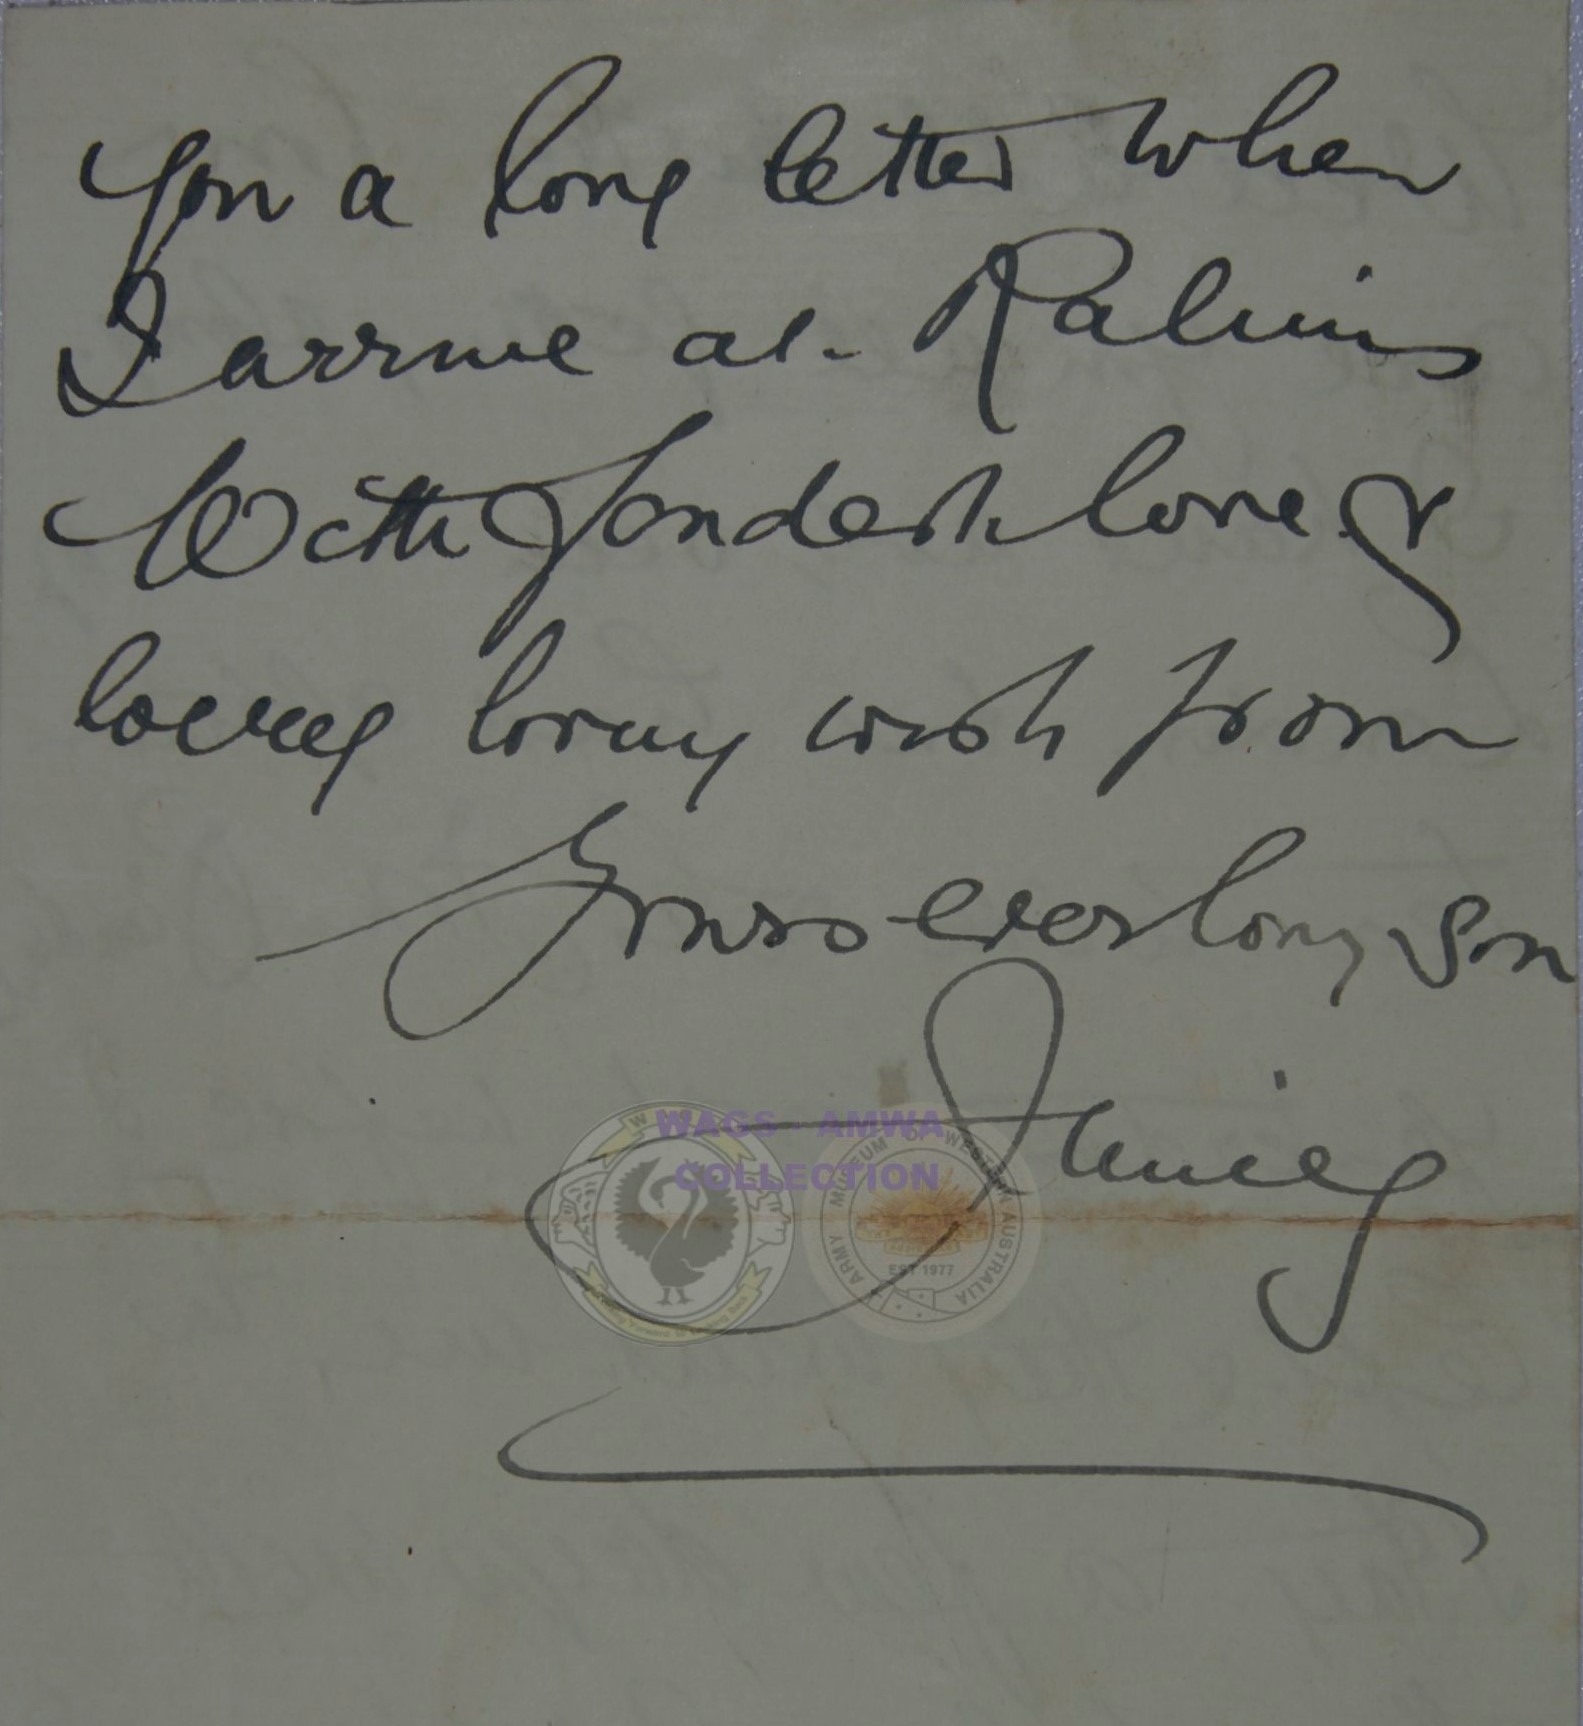 you a long letter when
I arrive at
With fondest love &
loving loving wish from
Yours ever loving son
WAGS - AMWA
COLLECTION
ARMY MUSEUM OF WESTERN AUSTRALIA
EST 1977